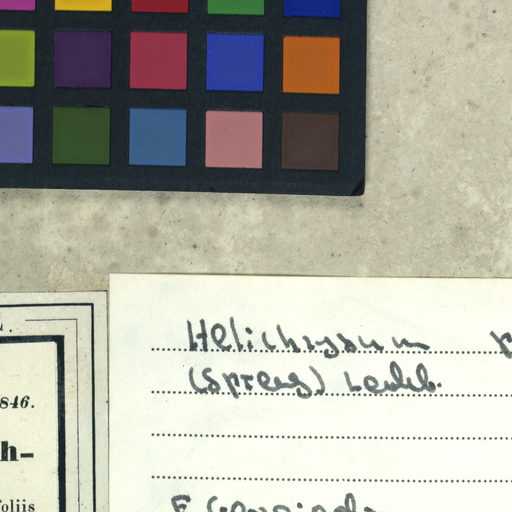 846.
h-
foliis
Helichrysum
(Spreng) Ledeb.